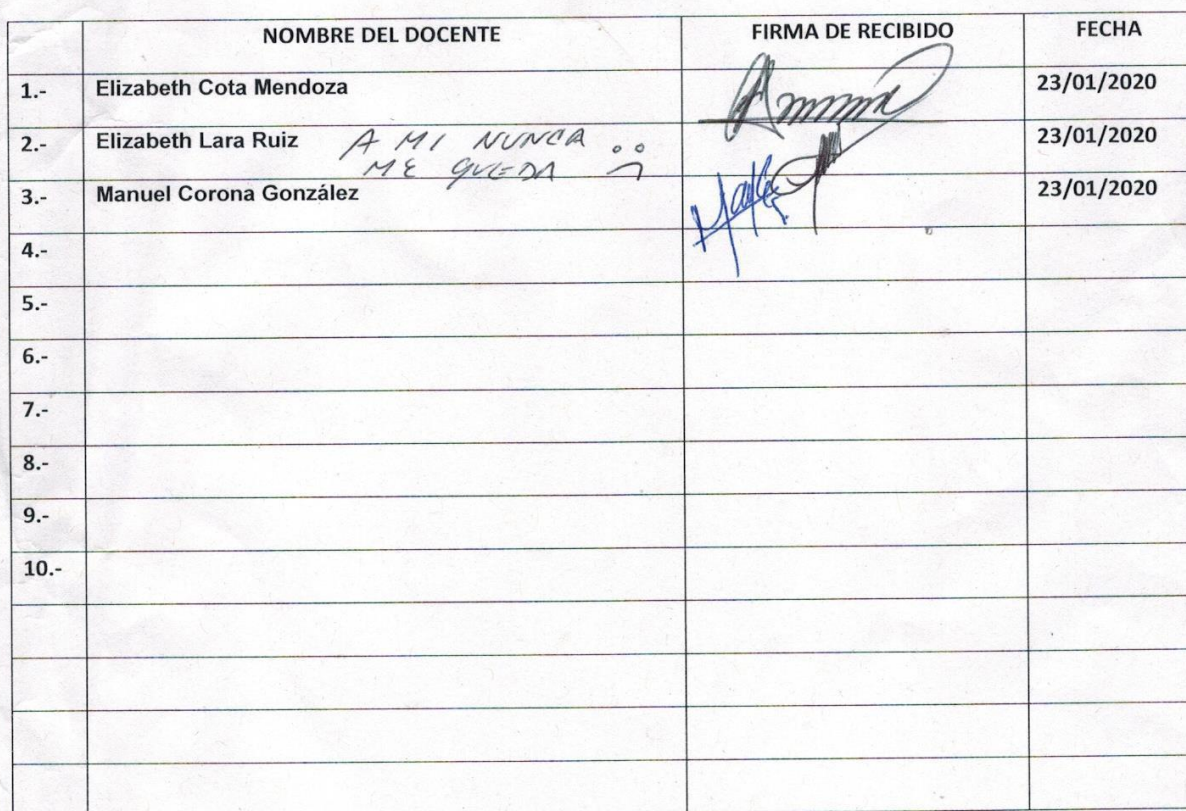 NOMBRE DEL DOCENTE FIRMA DE RECIBIDO FECHA
1.- Elizabeth Cota Mendoza 23/01/2020
2.- Elizabeth Lara Ruiz A MI NUNCA 23/01/2020
ME QUEDA
3.- Manuel Corona González 23/01/2020
4.-
5.-
6.-
7.-
8.-
9.-
10.-